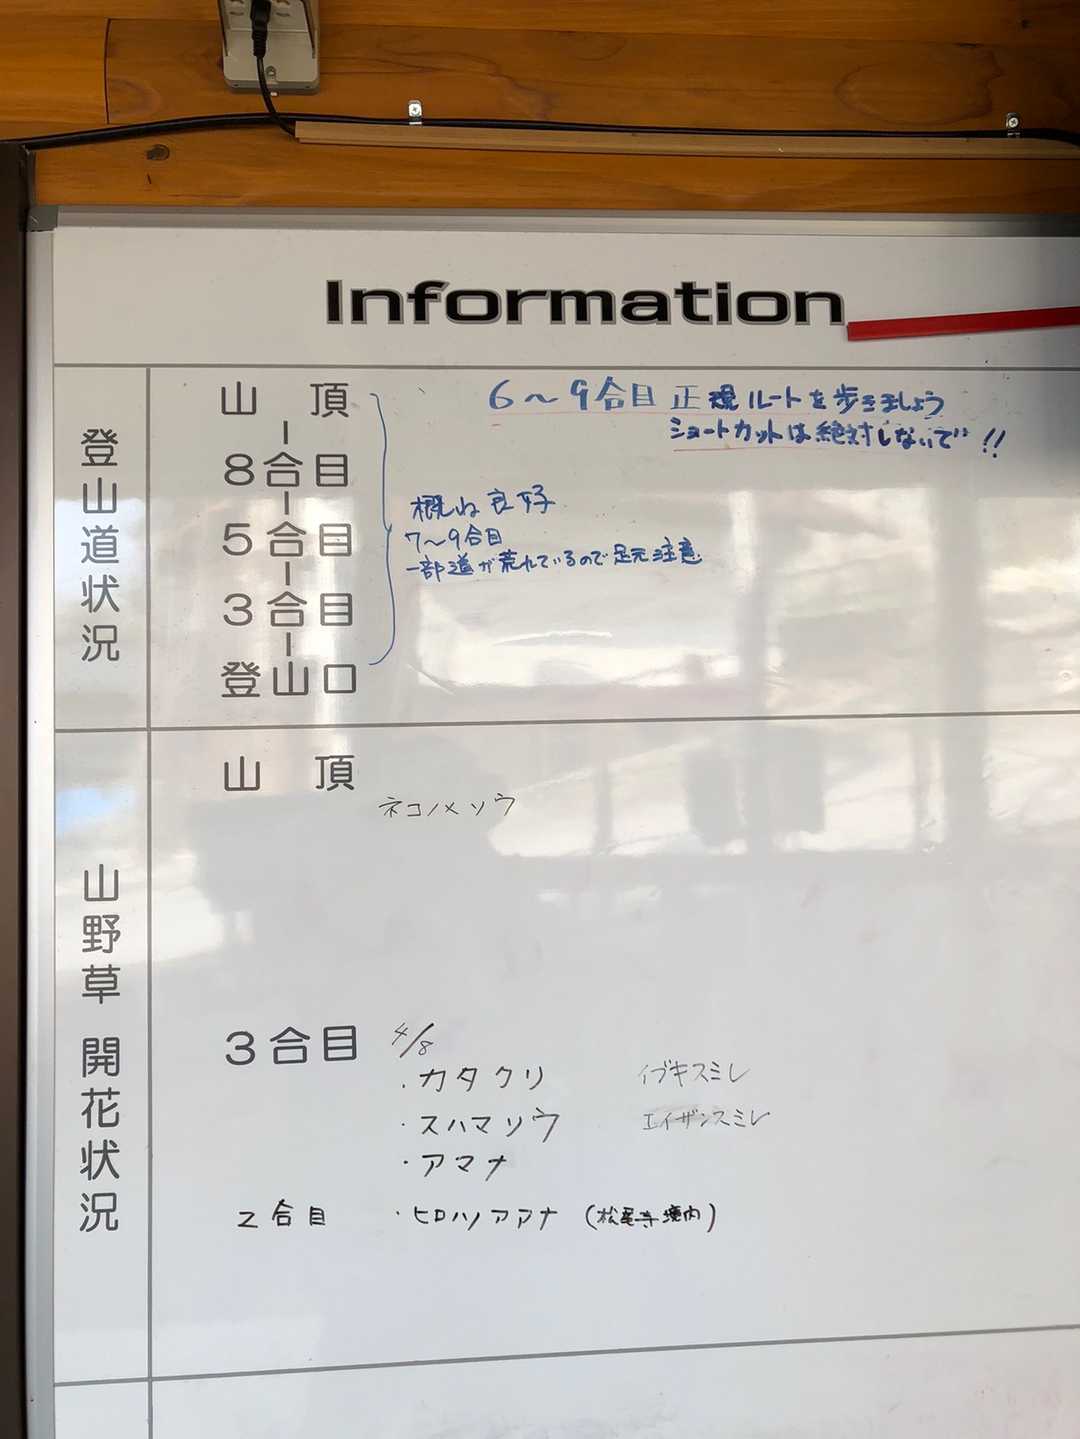 Information
登山道状況
山頂
8合目
5合目
3合目
登山口
6〜9合目 正規ルートを歩きましょう
ショートカットは絶対しないで!!
概ね良好
7〜9合目
一部道が荒れているので足元注意
山野草 開花状況
山頂
ネコノメソウ
3合目 4/8
・カタクリ イブキスミレ
・スハマソウ エイザンスミレ
・アマナ
2合目 ・ヒロハノアマナ (松尾寺境内)